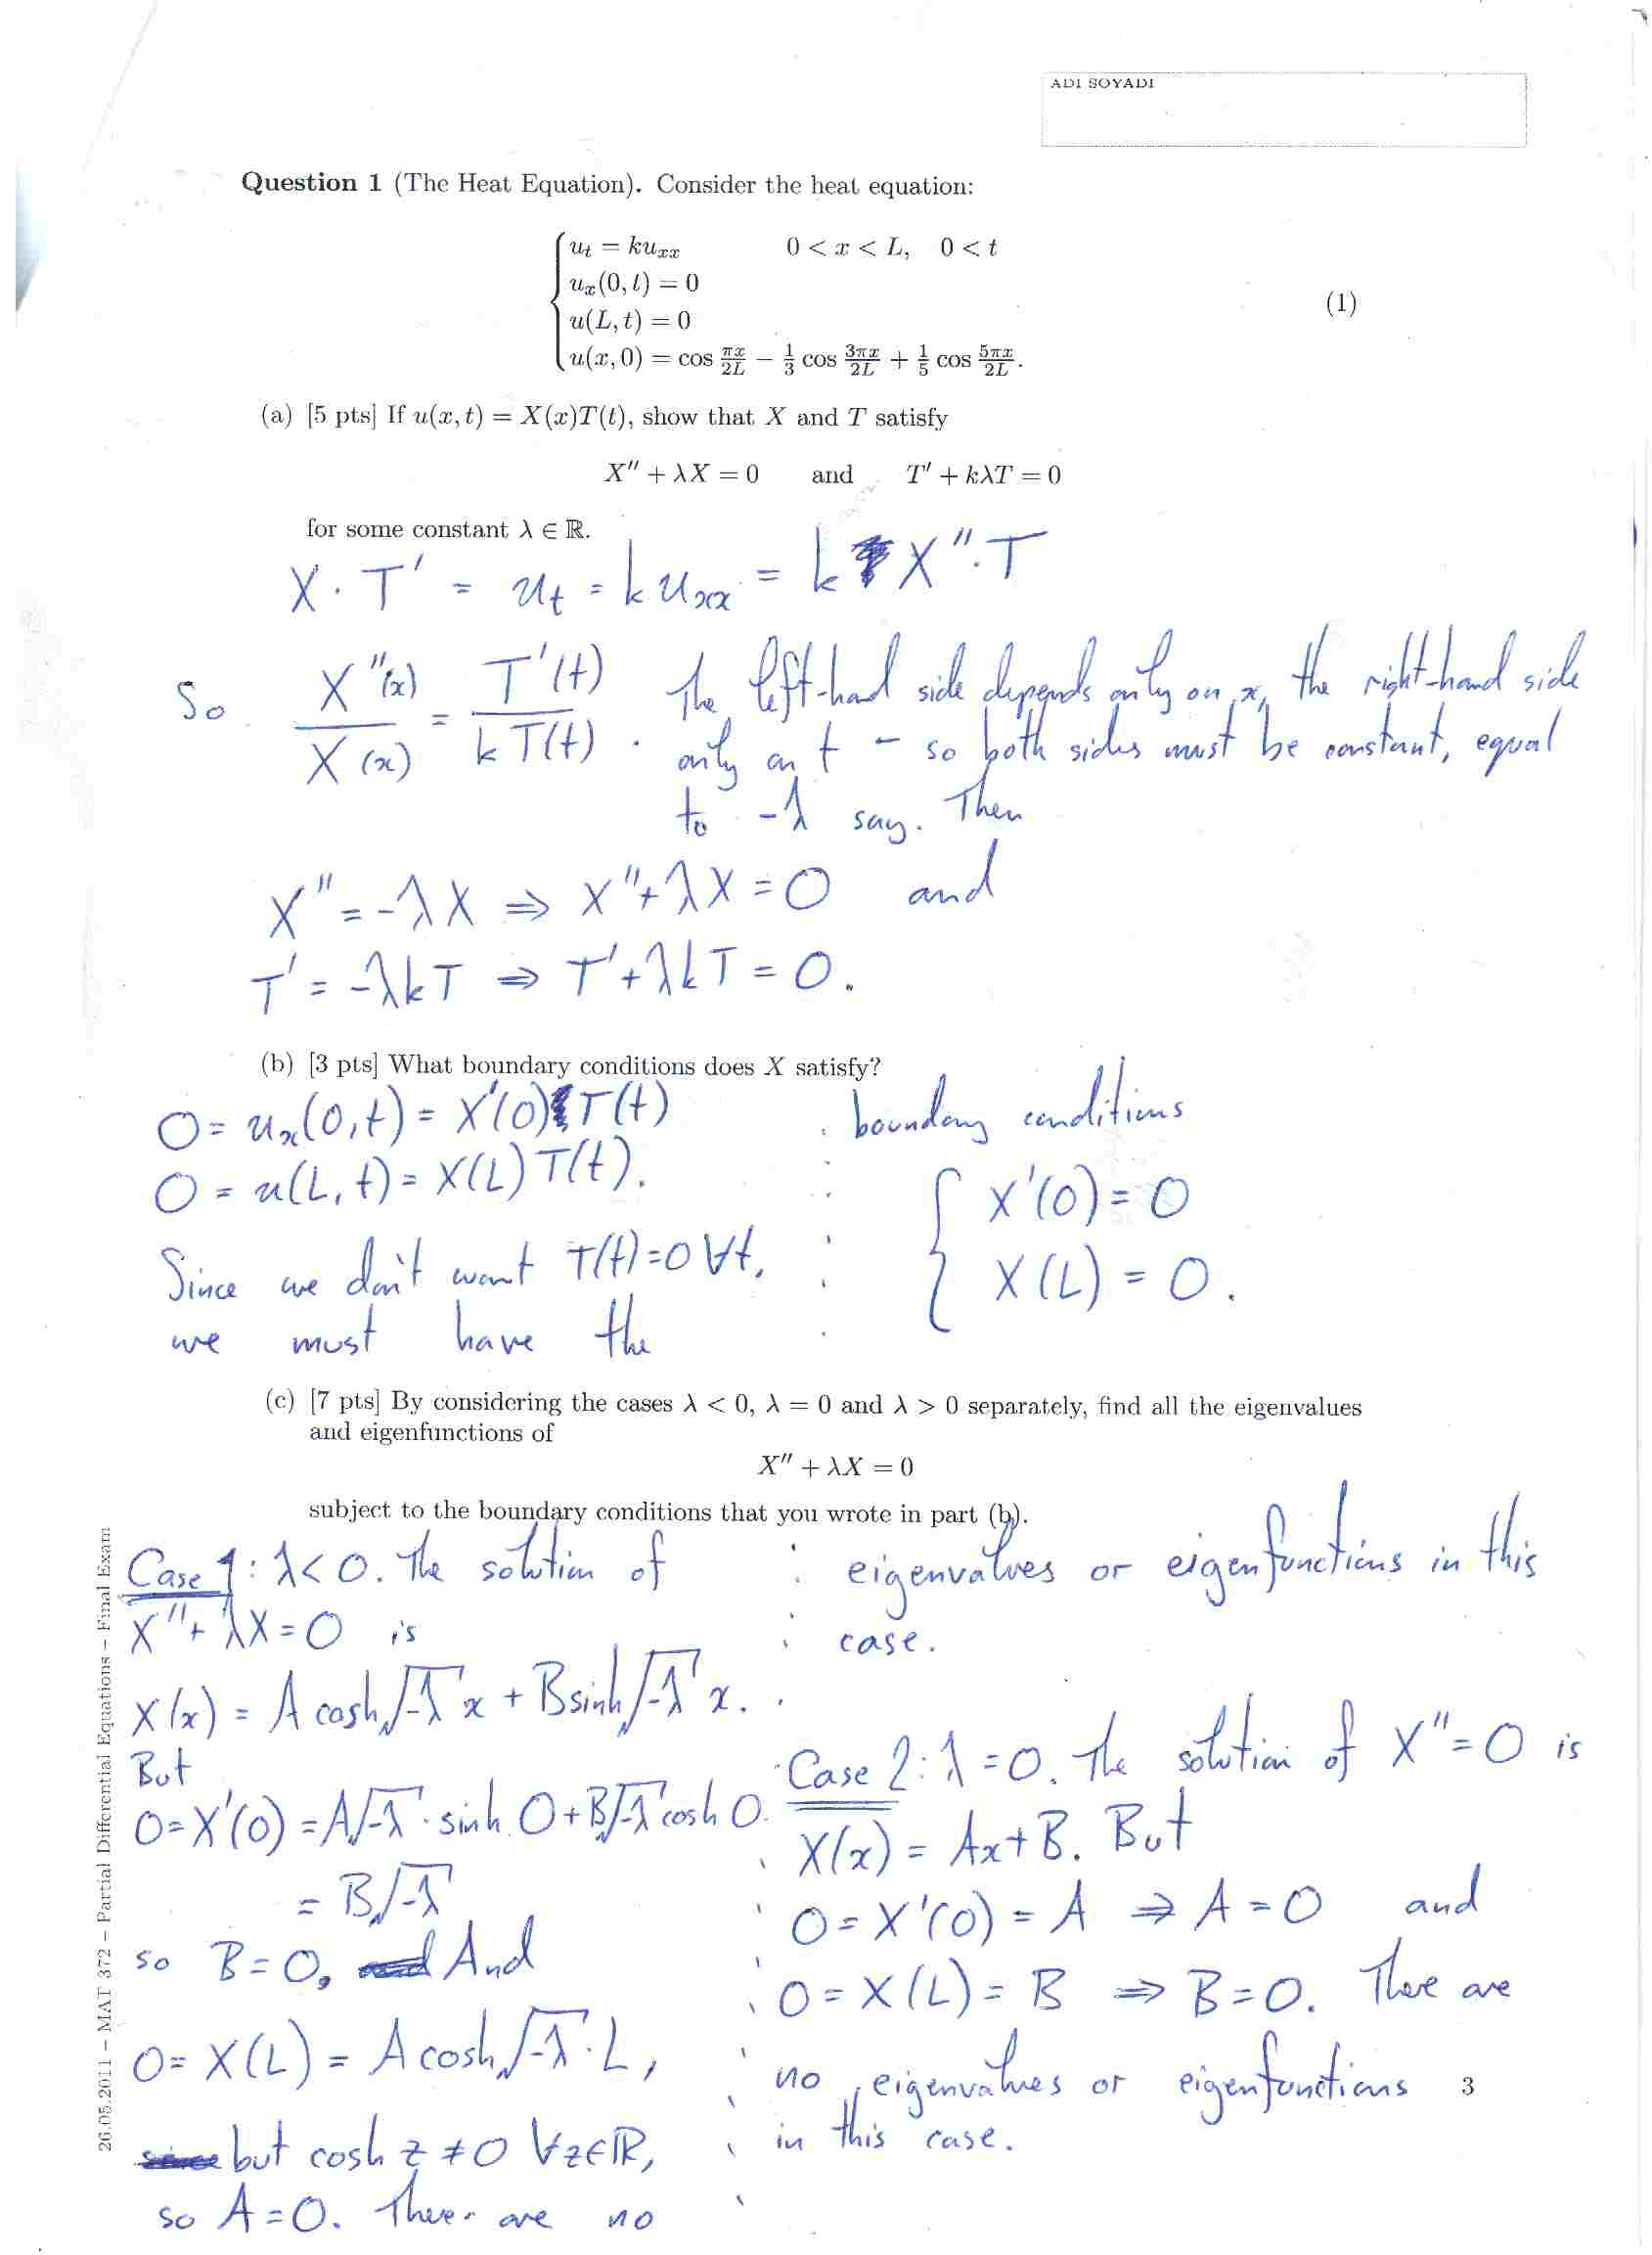 ADI SOYADI
Question 1 (The Heat Equation). Consider the heat equation:
u_t = ku_xx 0 < x < L, 0 < t
u_x(0, t) = 0
u(L, t) = 0
(1)
u(x, 0) = cos πx/2L − 1/3 cos 3πx/2L + 1/5 cos 5πx/2L.
(a) [5 pts] If u(x, t) = X(x)T(t), show that X and T satisfy
X″ + λX = 0 and T′ + kλT = 0
for some constant λ ∈ ℝ.
X · T′ = u_t = k u_xx = k X″ · T
So X″(x)/X(x) = T′(t)/kT(t) . The left-hand side depends only on x, the right-hand side
only on t – so both sides must be constant, equal
to -λ say. Then
X″ = -λX ⇒ X″ + λX = 0 and
T′ = -λkT ⇒ T′ + λkT = 0.
(b) [3 pts] What boundary conditions does X satisfy?
0 = u_x(0,t) = X′(0) T(t)
0 = u(L,t) = X(L) T(t).
Since we don't want T(t)=0 ∀t,
we must have the
boundary conditions
X′(0) = 0
X(L) = 0.
(c) [7 pts] By considering the cases λ < 0, λ = 0 and λ > 0 separately, find all the eigenvalues
and eigenfunctions of
X″ + λX = 0
subject to the boundary conditions that you wrote in part (b).
Case 1: λ < 0. The solution of
X″ + λX = 0 is
X(x) = A cosh √-λ x + B sinh √-λ x.
But
0 = X′(0) = A√-λ · sinh 0 + B√-λ cosh 0
= B√-λ
so B = 0, And
0 = X(L) = A cosh √-λ · L,
but cosh z ≠ 0 ∀z∈ℝ,
so A = 0. There are no
eigenvalues or eigenfunctions in this
case.
Case 2: λ = 0. The solution of X″ = 0 is
X(x) = Ax + B. But
0 = X′(0) = A ⇒ A = 0 and
0 = X(L) = B ⇒ B = 0. There are
no eigenvalues or eigenfunctions
in this case.
26.05.2011 – MAT 372 – Partial Differential Equations – Final Exam
3